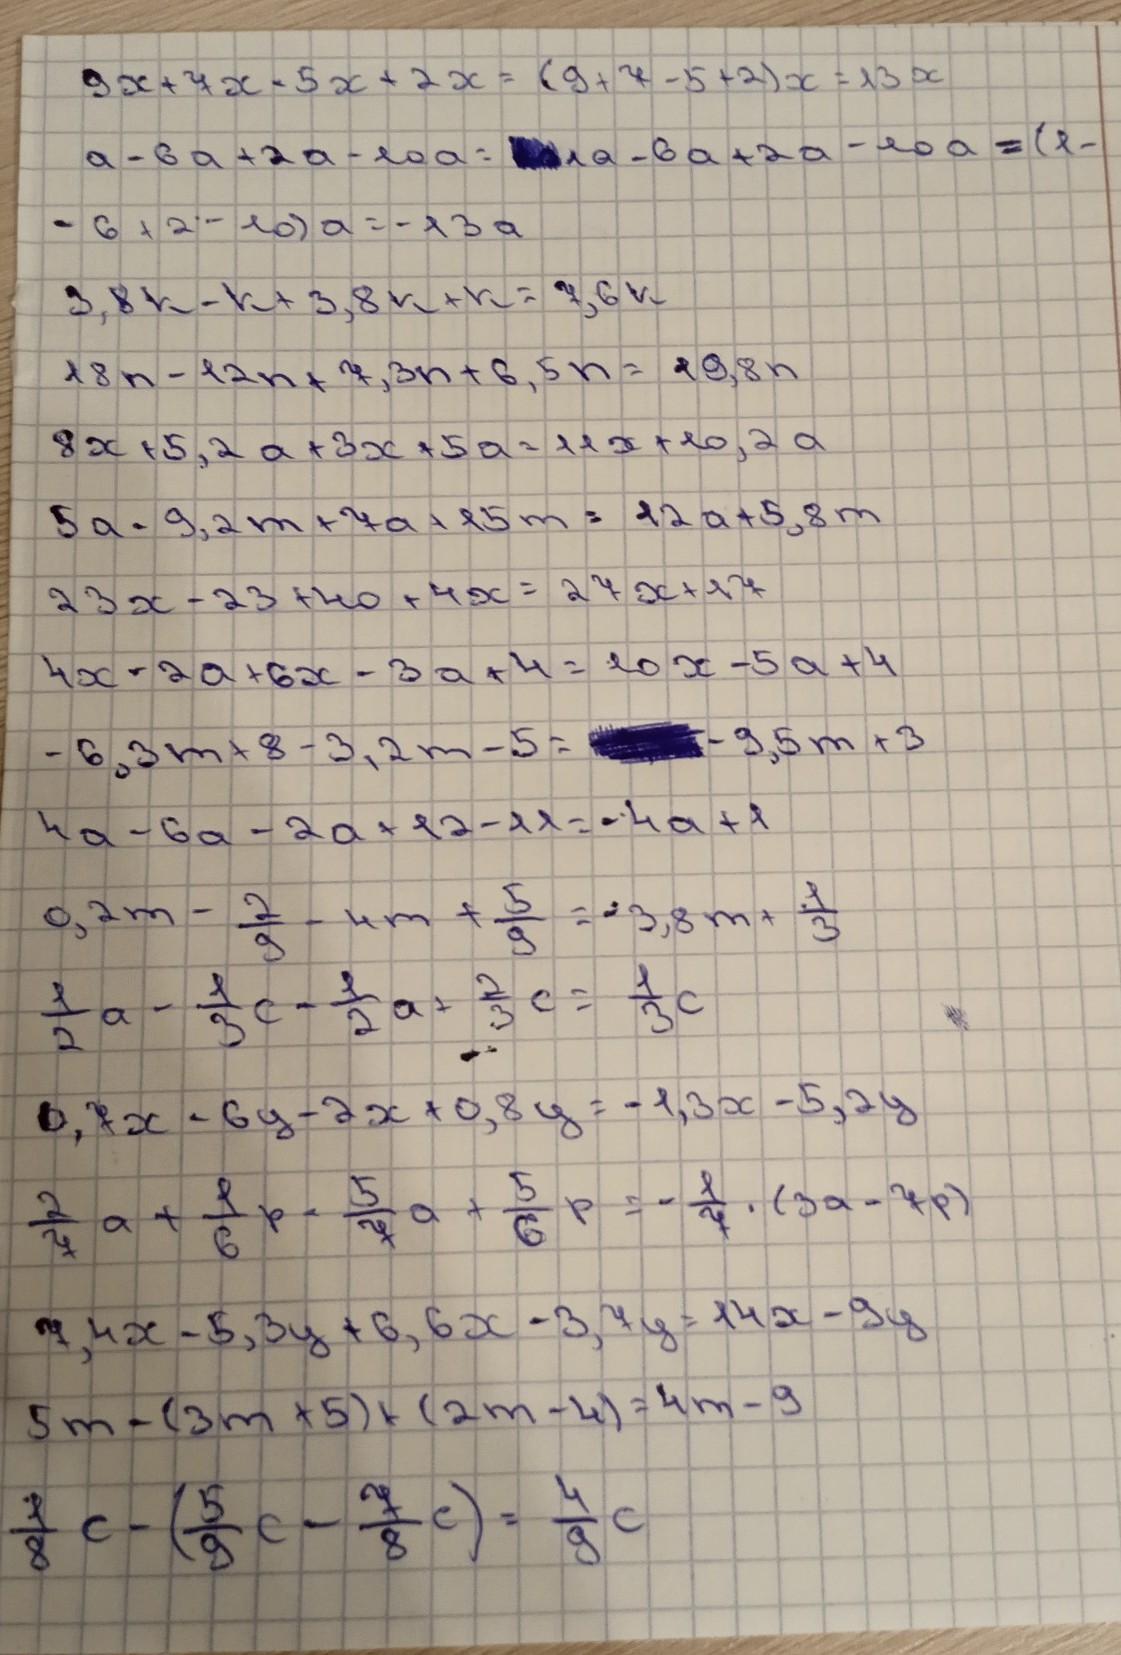 9x+7x-5x+2x=(9+7-5+2)x=13x
a-6a+2a-10a= 1a-6a+2a-10a=(1-
-6+2-10)a=-13a
3,8k-k+3,8k+k=7,6k
18n-12n+7,3n+6,5n=19,8n
8x+5,2a+3x+5a=11x+10,2a
5a-9,2m+7a+15m=12a+5,8m
23x-23+40+4x=27x+17
4x-2a+6x-3a+4=10x-5a+4
-6,3m+8-3,2m-5= -9,5m+3
4a-6a-2a+12-11=-4a+1
0,2m-2/9-4m+5/9=-3,8m+1/3
1/2a-1/3c-1/2a+2/3c=1/3c
0,7x-6y-2x+0,8y=-1,3x-5,2y
2/7a+1/6p-5/7a+5/6p=-1/7·(3a-7p)
7,4x-5,3y+6,6x-3,7y=14x-9y
5m-(3m+5)+(2m-4)=4m-9
1/8c-(5/9c-7/8c)=4/9c